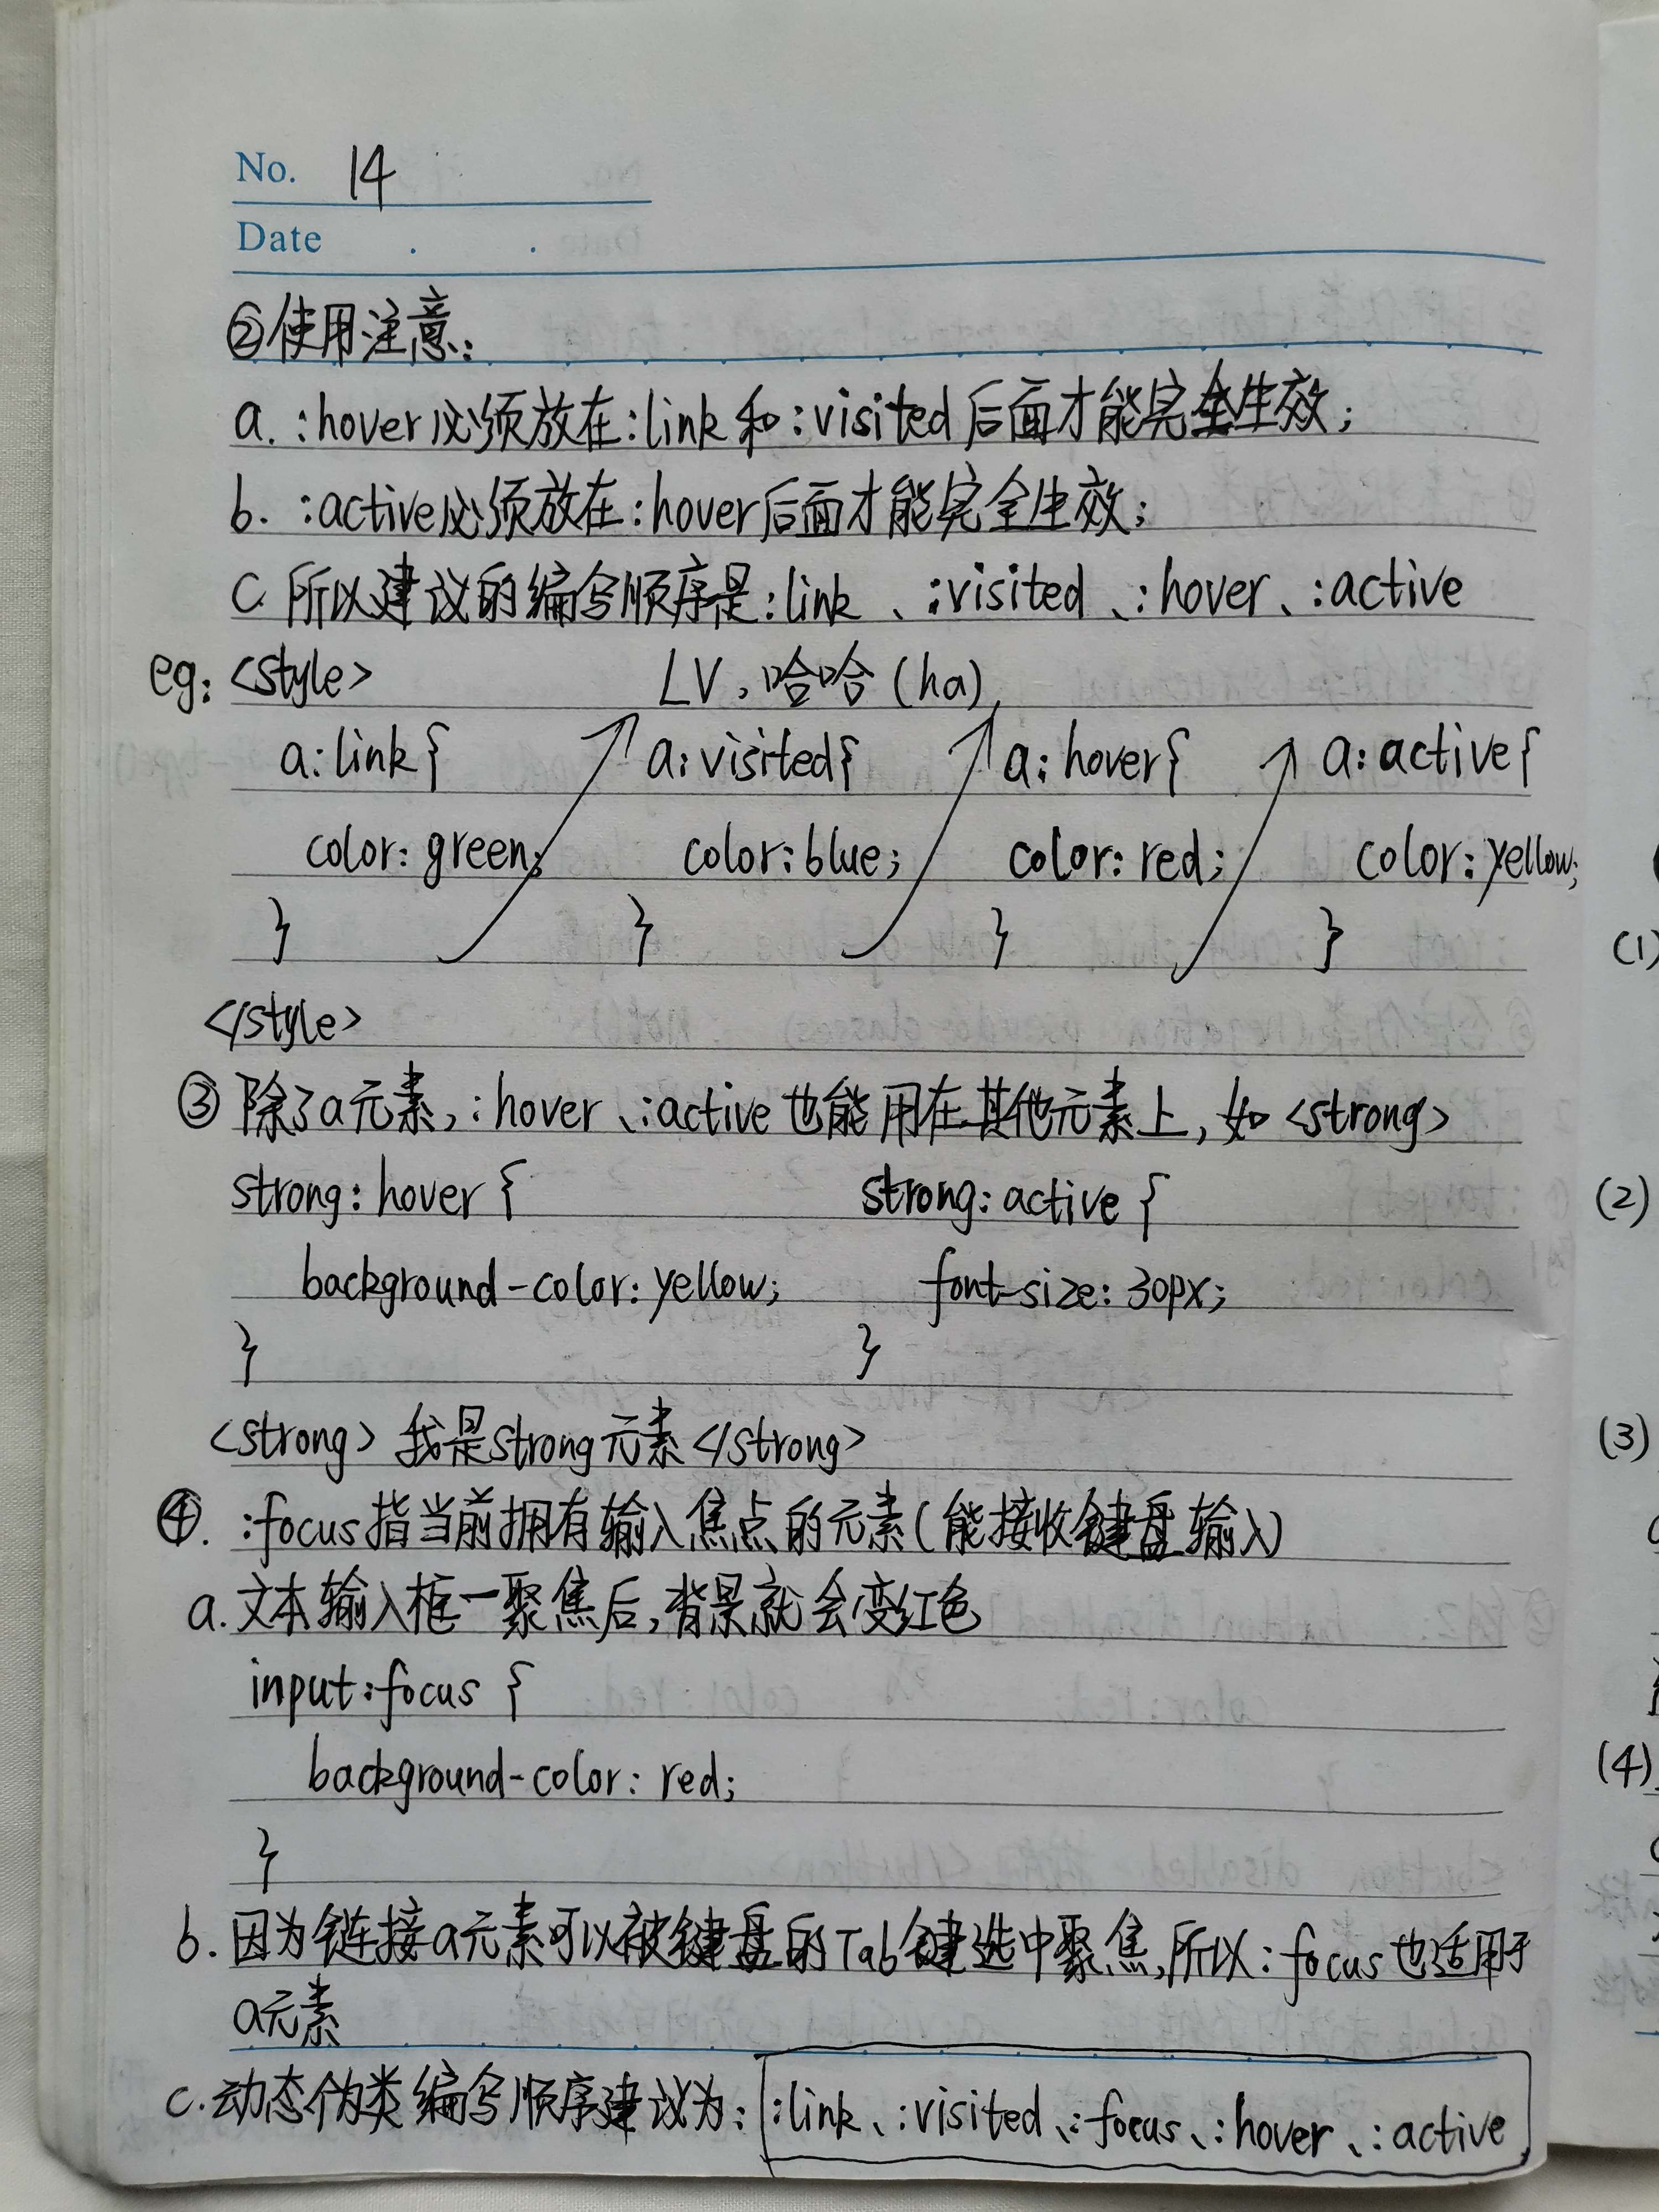 No. 14
Date . .
②使用注意:
a. :hover必须放在:link和:visited后面才能完全生效;
b. :active必须放在:hover后面才能完全生效;
c. 所以建议的编写顺序是:link、:visited、:hover、:active
eg: <style> LV,哈哈(ha)
a:link{ a:visited{ a:hover{ a:active{
color: green; color:blue; color: red; color: yellow;
} } } }
</style>
③ 除了a元素,:hover、:active也能用在其他元素上,如<strong>
strong: hover { strong: active {
background-color: yellow; font-size: 30px;
} }
<strong>我是strong元素</strong>
④. :focus指当前拥有输入焦点的元素(能接收键盘输入)
a.文本输入框一聚焦后,背景就会变红色
input:focus {
background-color: red;
}
b.因为链接a元素可以被键盘的Tab键选中聚焦,所以:focus也适用于
a元素
c.动态伪类编写顺序建议为: :link、:visited、:focus、:hover、:active
(1)
(2)
(3)
(4)